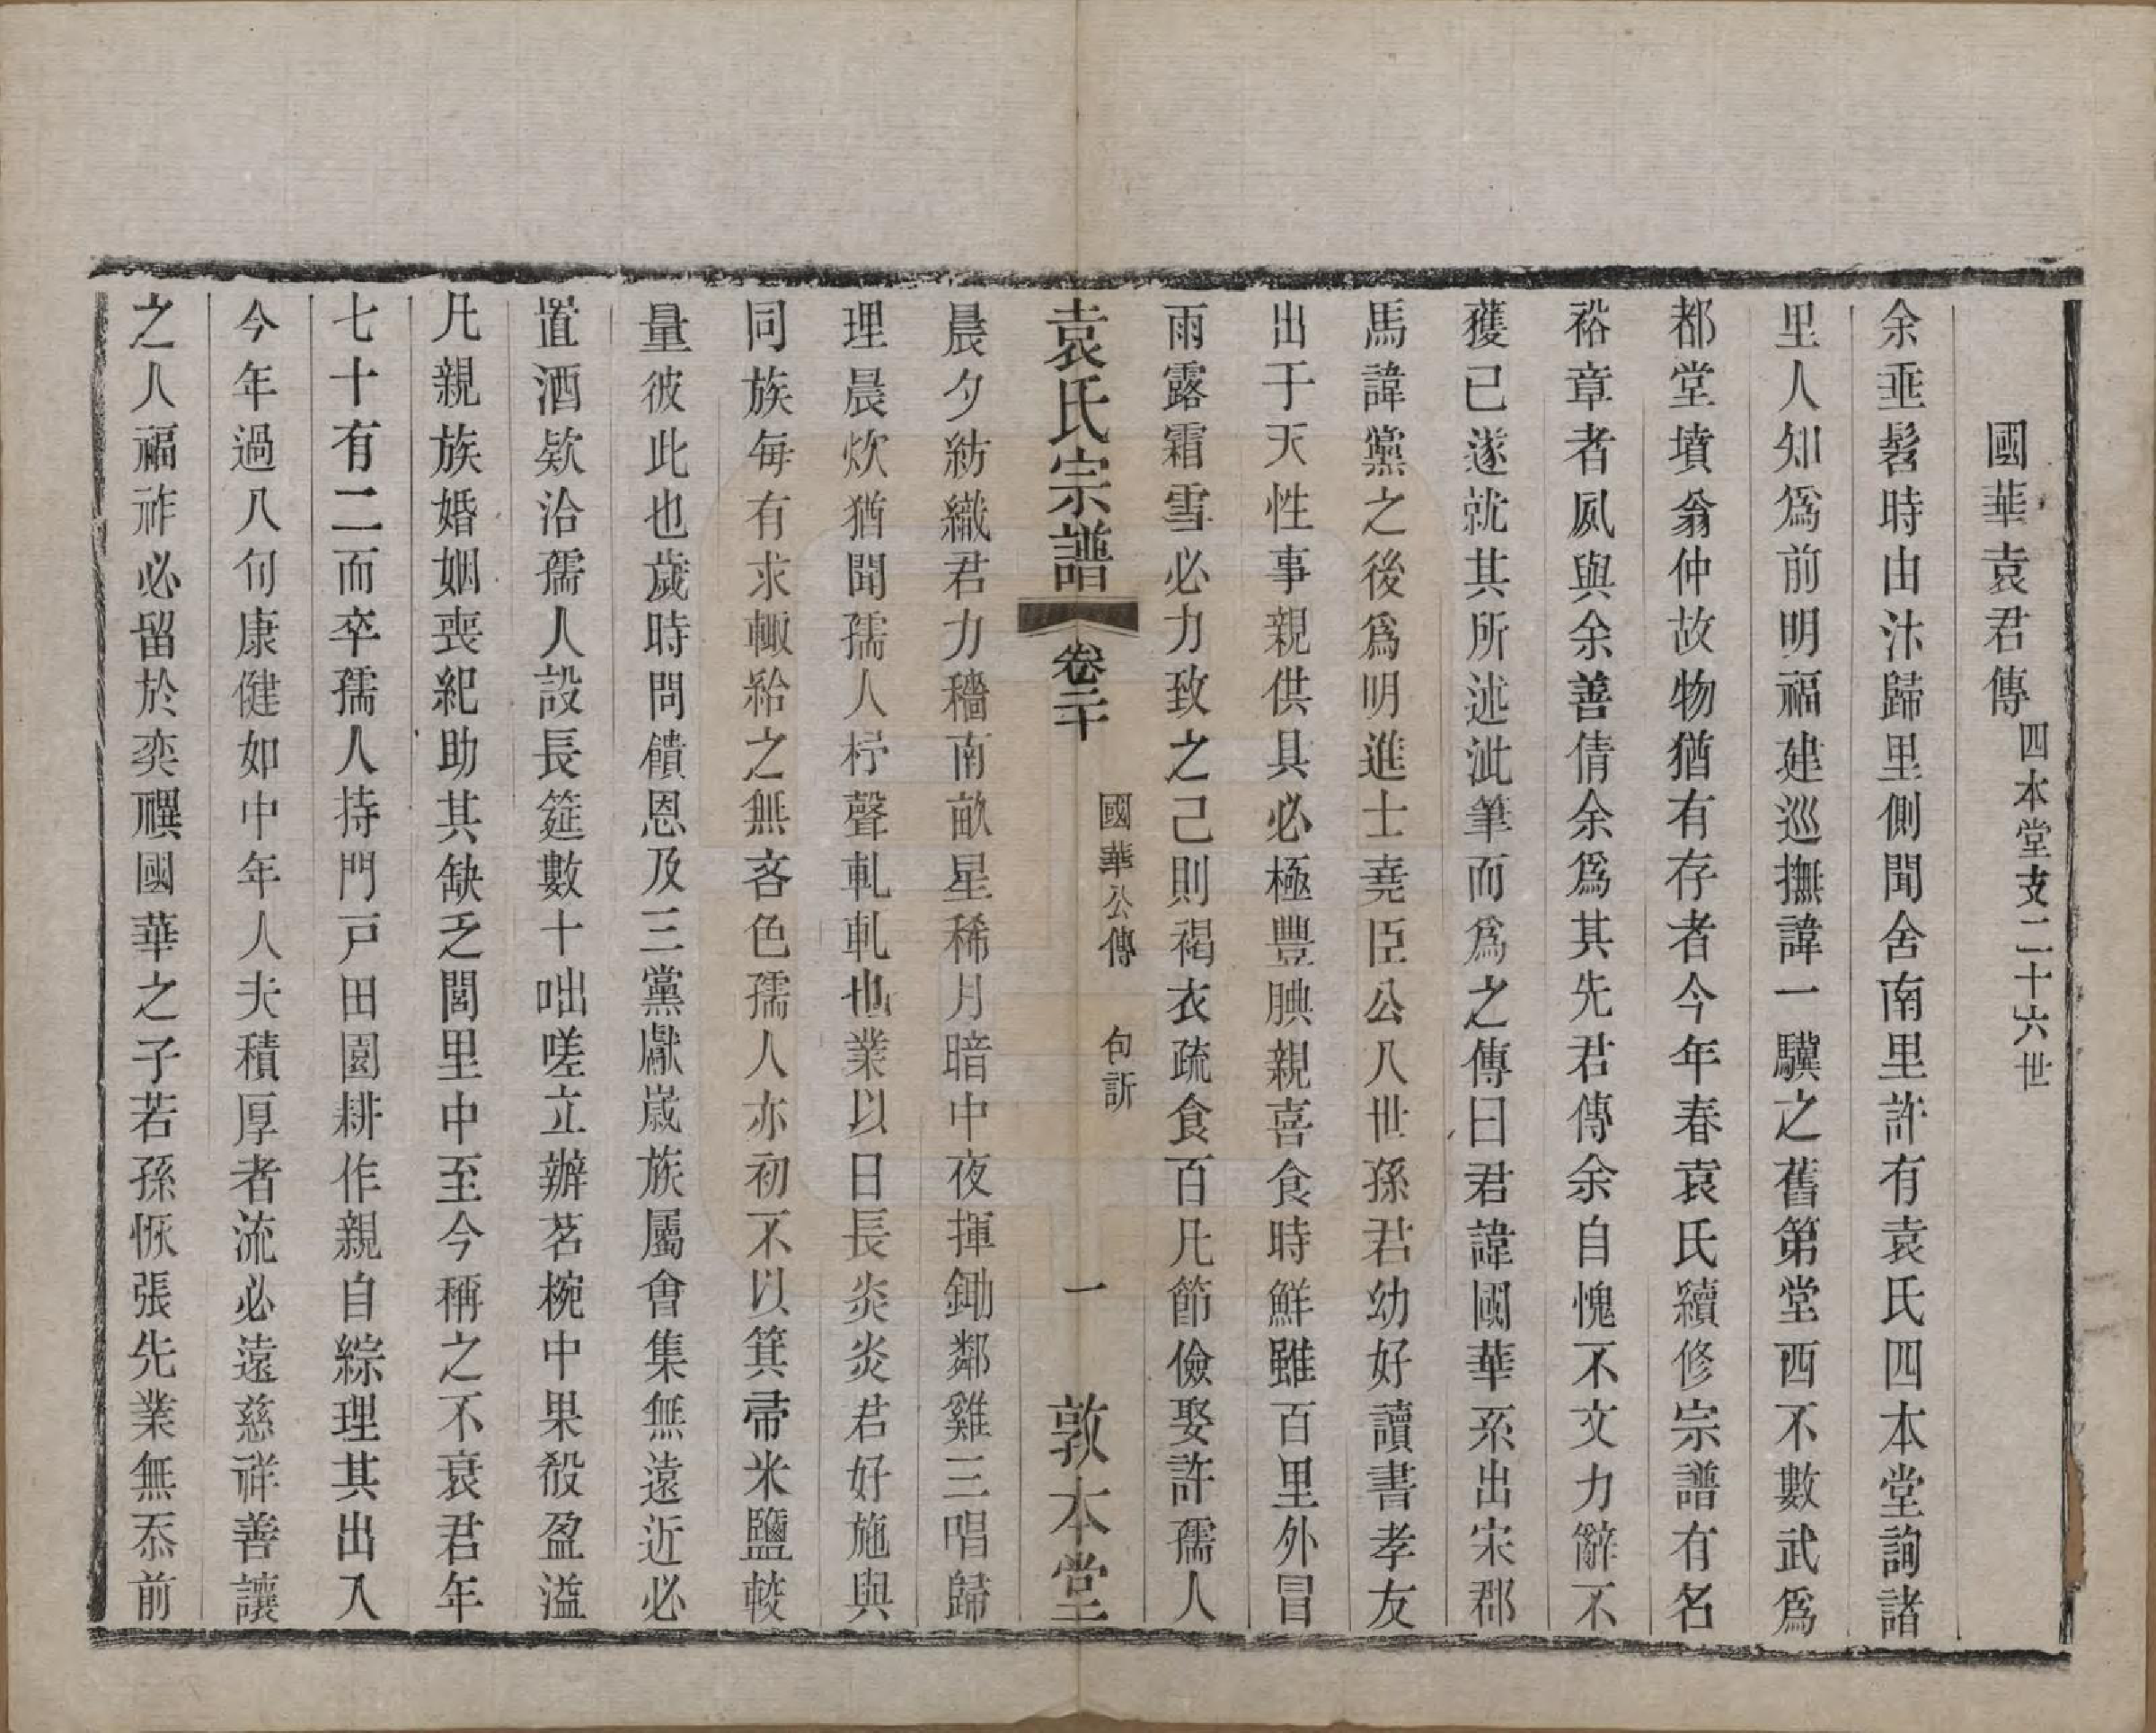 國華袁君傳四本堂支二十六世
余垂髫時由汴歸里側聞舍南里許有袁氏四本堂詢諸
里人知爲前明福建巡撫諱一驥之舊第堂西不數武爲
都堂墳翁仲故物猶有存者今年春袁氏續修宗譜有名
裕章者夙與余善倩余爲其先君傳余自愧不文力辭不
獲已遂就其所述泚筆而爲之傳曰君諱國華系出宋郡
馬諱黨之後爲明進士堯臣公八世孫君幼好讀書孝友
出于天性事親供具必極豐腆親喜食時鮮雖百里外冒
雨露霜雪必力致之己則褐衣疏食百凡節儉娶許孺人
袁氏宗譜 卷二十 國華公傳 句訢 一 敦本堂
晨夕紡織君力穡南畝星稀月暗中夜揮鋤鄰雞三唱歸
理晨炊猶聞孺人杼聲軋軋也業以日長炎炎君好施與
同族每有求輙給之無吝色孺人亦初不以箕帚米鹽較
量彼此也歲時問饋恩及三黨獻歲族屬會集無遠近必
置酒欵洽孺人設長筵數十咄嗟立辦茗椀中果殽盈溢
凡親族婚姻喪紀助其缺乏閭里中至今稱之不衰君年
七十有二而卒孺人持門戸田園耕作親自綜理其出入
今年過八旬康健如中年人夫積厚者流必遠慈祥善讓
之人福祚必留於奕禩國華之子若孫恢張先業無忝前